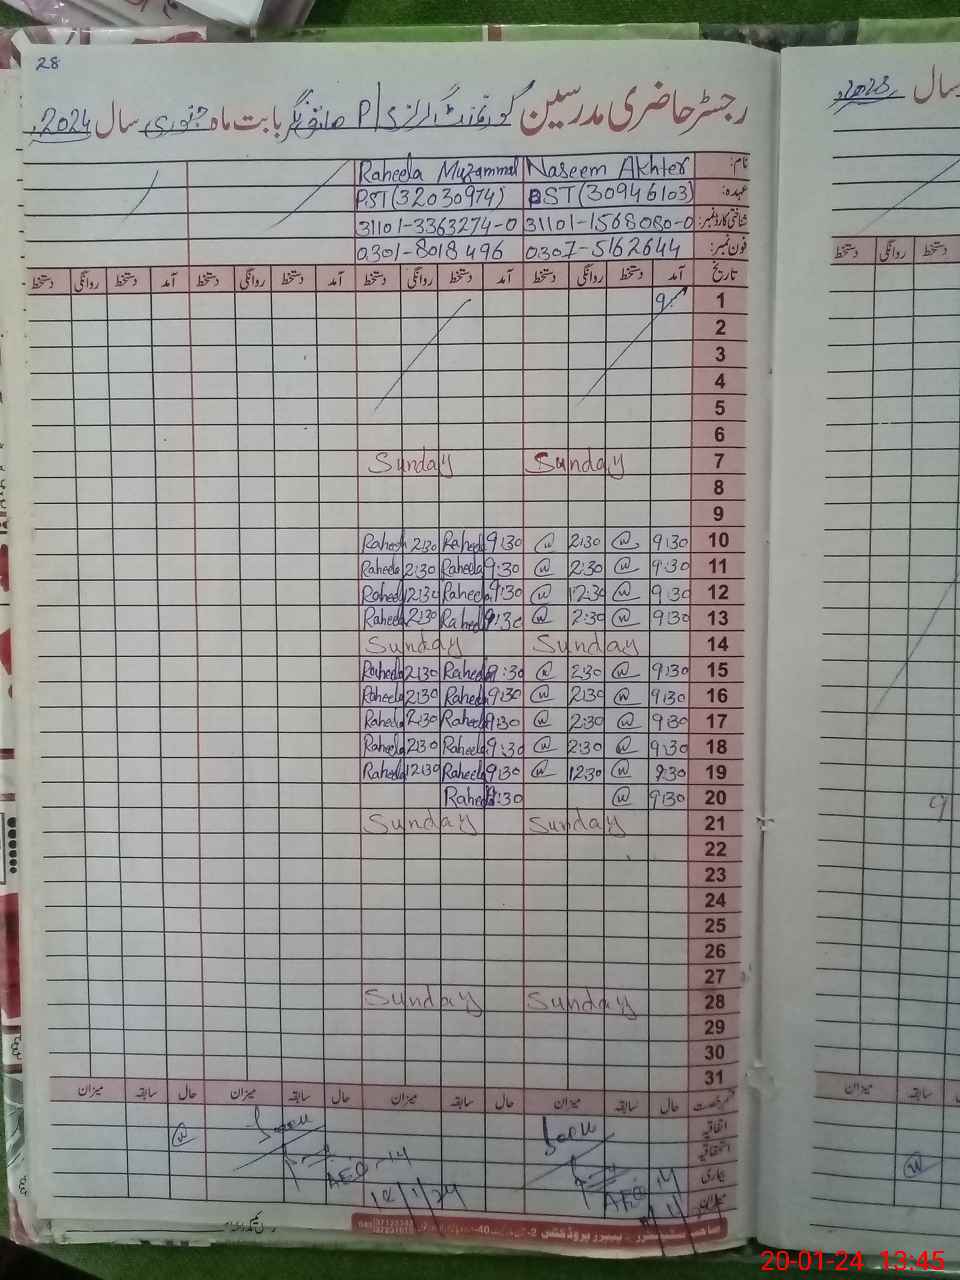 28
رجسٹر حاضری مدرسین گورنمنٹ گرلز P/ بابت ماہ جنوری سال 2024ء
نام: Naseem Akhter Raheela Muzammal
عہدہ: PST (30946103) PST (32030974)
شناختی کارڈ نمبر: 31101-1568080-0 31101-3363274-0
فون نمبر: 0307-5162644 0301-8018496
تاریخ آمد دستخط روانگی دستخط آمد دستخط روانگی دستخط آمد دستخط روانگی دستخط آمد دستخط روانگی دستخط
1 9:
2
3
4
5
6
7 Sunday Sunday
8
9
10 9:30 2:30 9:30 Raheela 2:30 Raheela
11 9:30 2:30 9:30 Raheela 2:30 Raheela
12 9:30 12:30 9:30 Raheela 12:30 Raheela
13 9:30 2:30 9:30 Raheela 2:30 Raheela
14 Sunday Sunday
15 9:30 2:30 9:30 Raheela 2:30 Raheela
16 9:30 2:30 9:30 Raheela 2:30 Raheela
17 9:30 2:30 9:30 Raheela 2:30 Raheela
18 9:30 2:30 9:30 Raheela 2:30 Raheela
19 9:30 12:30 9:30 Raheela 12:30 Raheela
20 9:30 9:30 Raheela
21 Sunday Sunday
22
23
24
25
26
27
28 Sunday Sunday
29
30
31
حال سابقہ میزان حال سابقہ میزان حال سابقہ میزان حال سابقہ میزان
اتفاقیہ
استحقاقیہ
بیماری
میزان
AEO-14
AEO-14
سال 2023ء
دستخط روانگی دستخط
میزان سابقہ
20-01-24 13:45